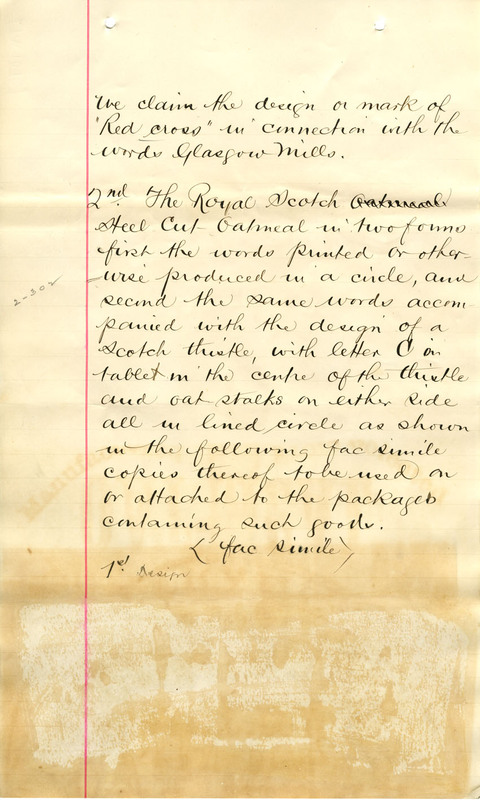 We claim the design or mark of
"Red cross" in connection with the
words Glasgow Mills.
2nd The Royal Scotch Oatmeal
Steel Cut Oatmeal in two forms
first the words printed or other-
wise produced in a circle, and
second the same words accom-
panied with the design of a
Scotch thistle, with letter C on
tablet in the centre of the thistle
and oat stalks on either side
all in lined circle as shown
in the following fac simile
copies thereof to be used on
or attached to the packages
containing such goods.
(fac simile)
1st Design
2-302